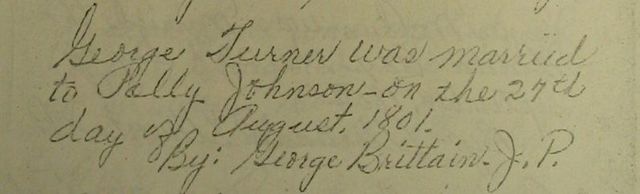 George Turner was married
to Polly Johnson - on the 27th
day of August. 1801.
By: George Brittain. J. P.